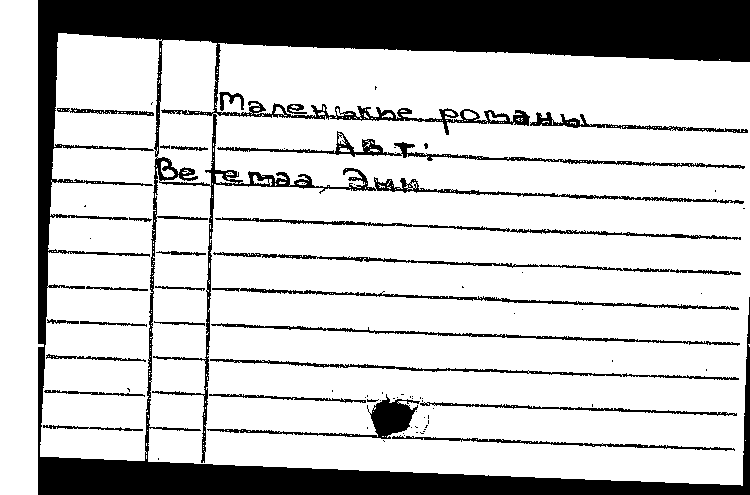 Маленькие романы
Авт:
Ветемаа, Энн